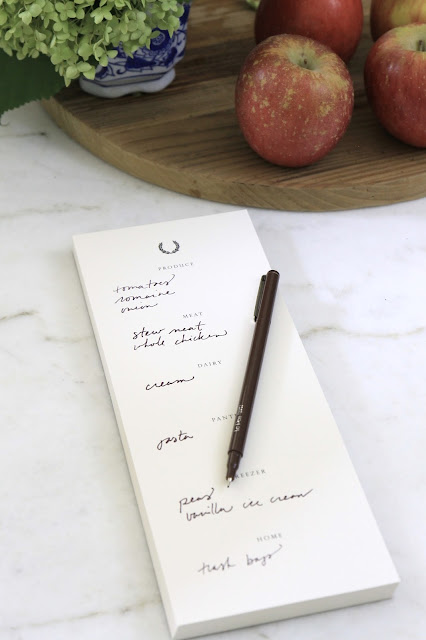 PRODUCE
tomatoes
romaine
onion
MEAT
stew meat
whole chicken
DAIRY
cream
PANT
pasta
REEZER
peas
vanilla ice cream
HOME
trash bags